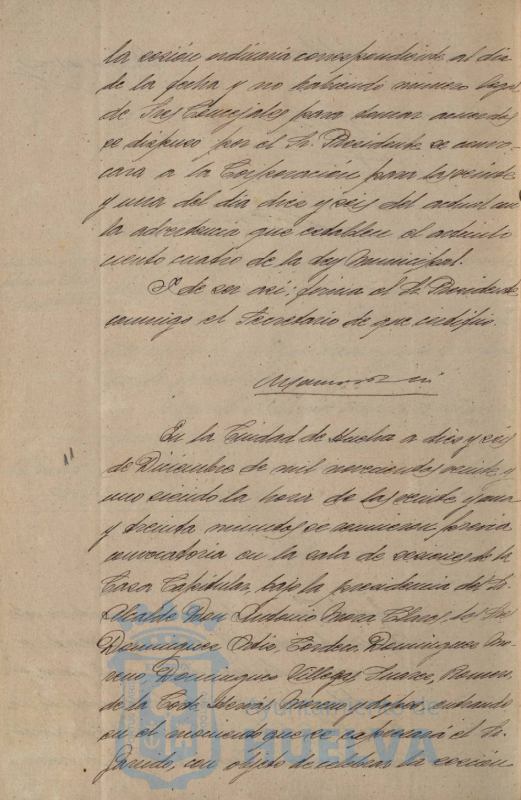 la sesión ordinaria correspondiente al dia
de la fecha y no habiendo numero legal
de Sres Concejales para tomar acuerdos
se dispuso por el Sr. Presidente se convo-
cara a la Corporación para las veinte
y una del dia diez y seis del actual con
la advertencia que establece el articulo
ciento cuatro de la ley Municipal.
Y de ser asi; firma el Sr. Presidente
conmigo el Secretario de que certifico.
En la Ciudad de Huelva a diez y seis
de Diciembre de mil novecientos veinte y
uno siendo la hora de las veinte y una
y treinta minutos se reunieron previa
convocatoria en la sala de sesiones de la
Casa Capitular, bajo la presidencia del Sr.
Alcalde Don Antonio Mora Claros, los Sres
Dominguez Ortiz, Cordero, Dominguez Mo-
reno, Dominguez Villegas, Suarez, Romero
de la Corte, Moreno y entrando
en el momento que se expresará el Sr.
Garrido, con objeto de celebrar la sesión
Ayuntamiento de
HUELVA